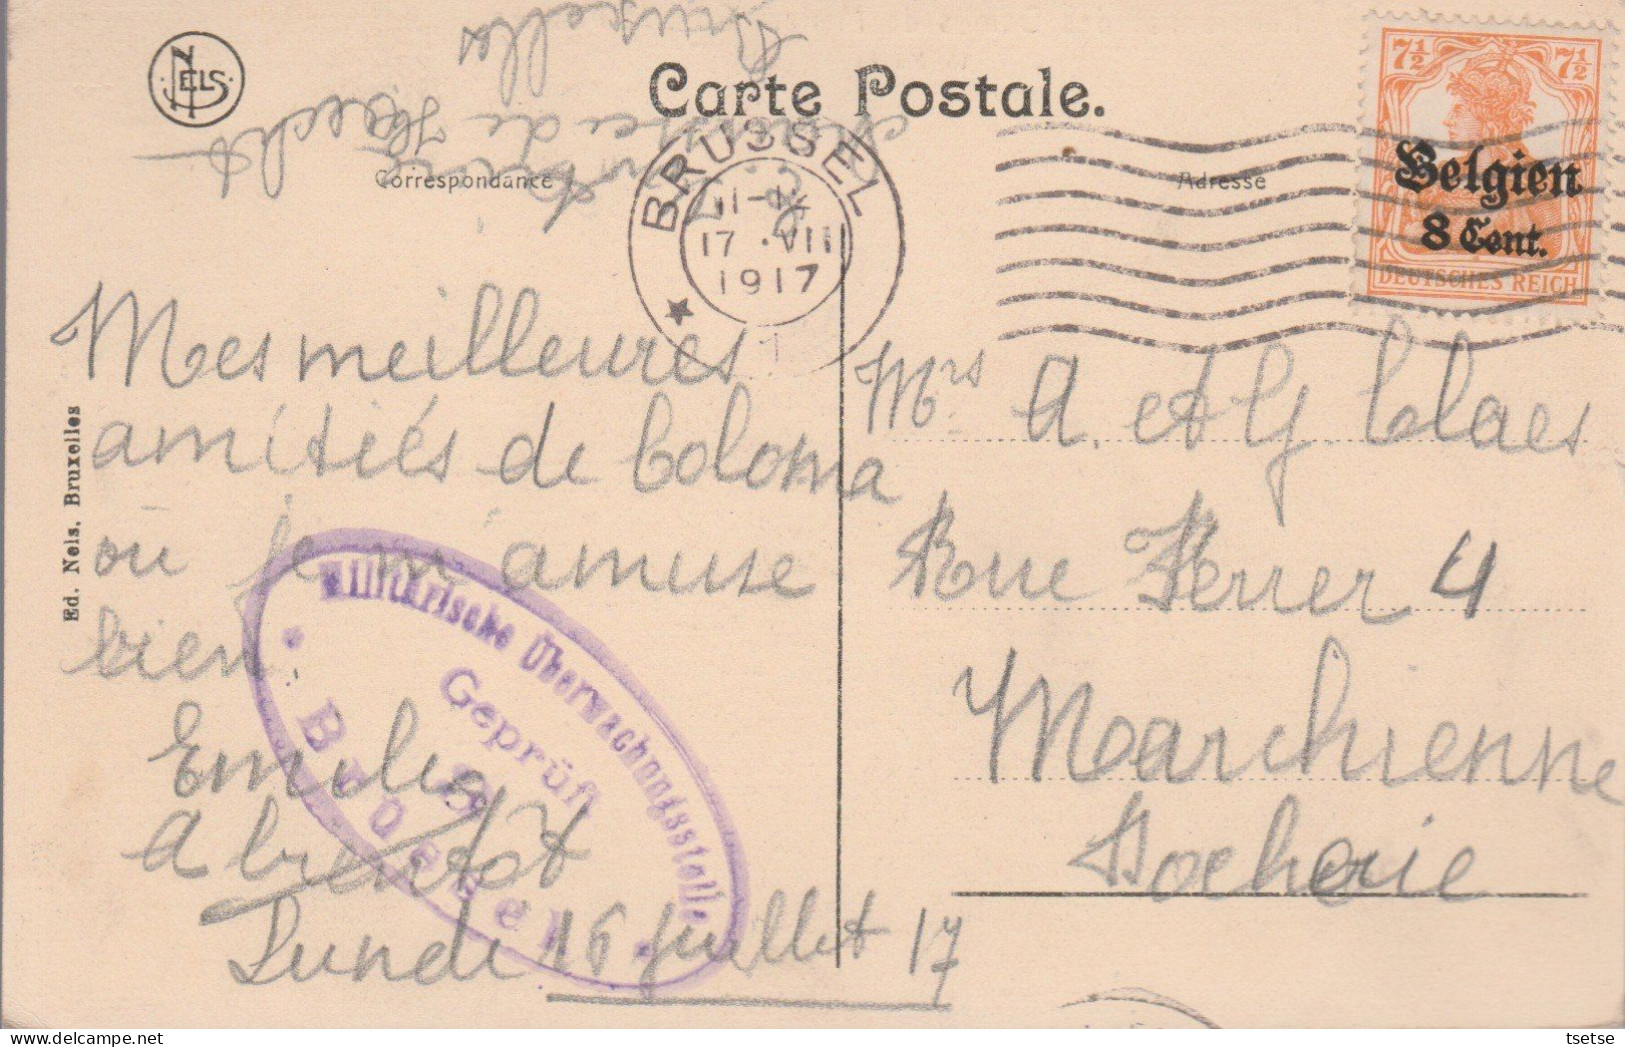 NELS
Carte Postale.
Bruxelles
de Haecht
Correspondance
Adresse
BRUSSEL
11-12
17 . VII
1917
1
7½ 7½
Belgien
8 Cent.
DEUTSCHES REICH
Mes meilleures
amitiés de Coloma
où je m'amuse
bien.
Emile
A bientôt
Lundi 16 Juillet 17
Mrs A. et G. Claes
Rue Ferrer 4
Marchienne
Docherie
Militärische Überwachungsstelle
Geprüft
Brüssel
Ed. Nels. Bruxelles
tsetse